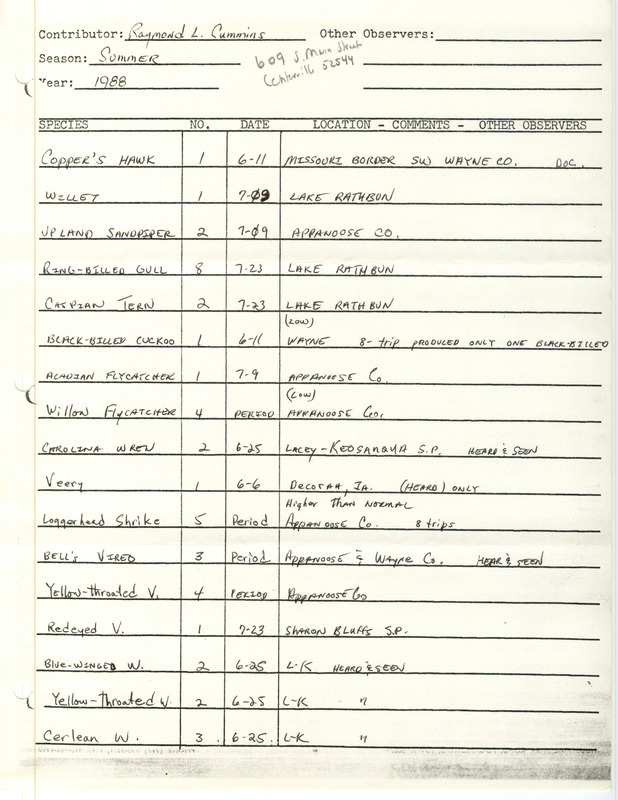 Contributor: Raymond L. Cummins Other Observers:
Season: Summer
609 S. Main Street
Centerville 52544
Year: 1988
SPECIES NO. DATE LOCATION - COMMENTS - OTHER OBSERVERS
COPPER'S HAWK 1 6-11 MISSOURI BORDER SW WAYNE CO. DOC.
WILLET 1 7-09 LAKE RATHBUN
UPLAND SANDPIPER 2 7-09 APPANOOSE CO.
RING-BILLED GULL 8 7-23 LAKE RATHBUN
CASPIAN TERN 2 7-23 LAKE RATHBUN
(LOW)
BLACK-BILLED CUCKOO 1 6-11 WAYNE 8- trip PRODUCED ONLY ONE BLACK-BILLED
ACADIAN FLYCATCHER 1 7-9 APPANOOSE Co.
(LOW)
Willow FLYCATCHER 4 PERIOD APPANOOSE Co.
CAROLINA WREN 2 6-25 LACEY-KEOSAUQUA S.P. HEARD & SEEN
Veery 1 6-6 DECORAH, IA. (HEARD) ONLY
Higher THAN NORMAL
Loggerhead Shrike 5 Period APPANOOSE Co. 8 trips
BELL'S VIREO 3 Period APPANOOSE & WAYNE Co. HEAR & SEEN
Yellow-throated V. 4 PERIOD APPANOOSE Co
Redeyed V. 1 7-23 SHARON BLUFFS S.P.
BLUE-WINGED W. 2 6-25 L-K HEARD & SEEN
Yellow-throated W. 2 6-25 L-K "
Cerlean W. 3 6-25 L-K "